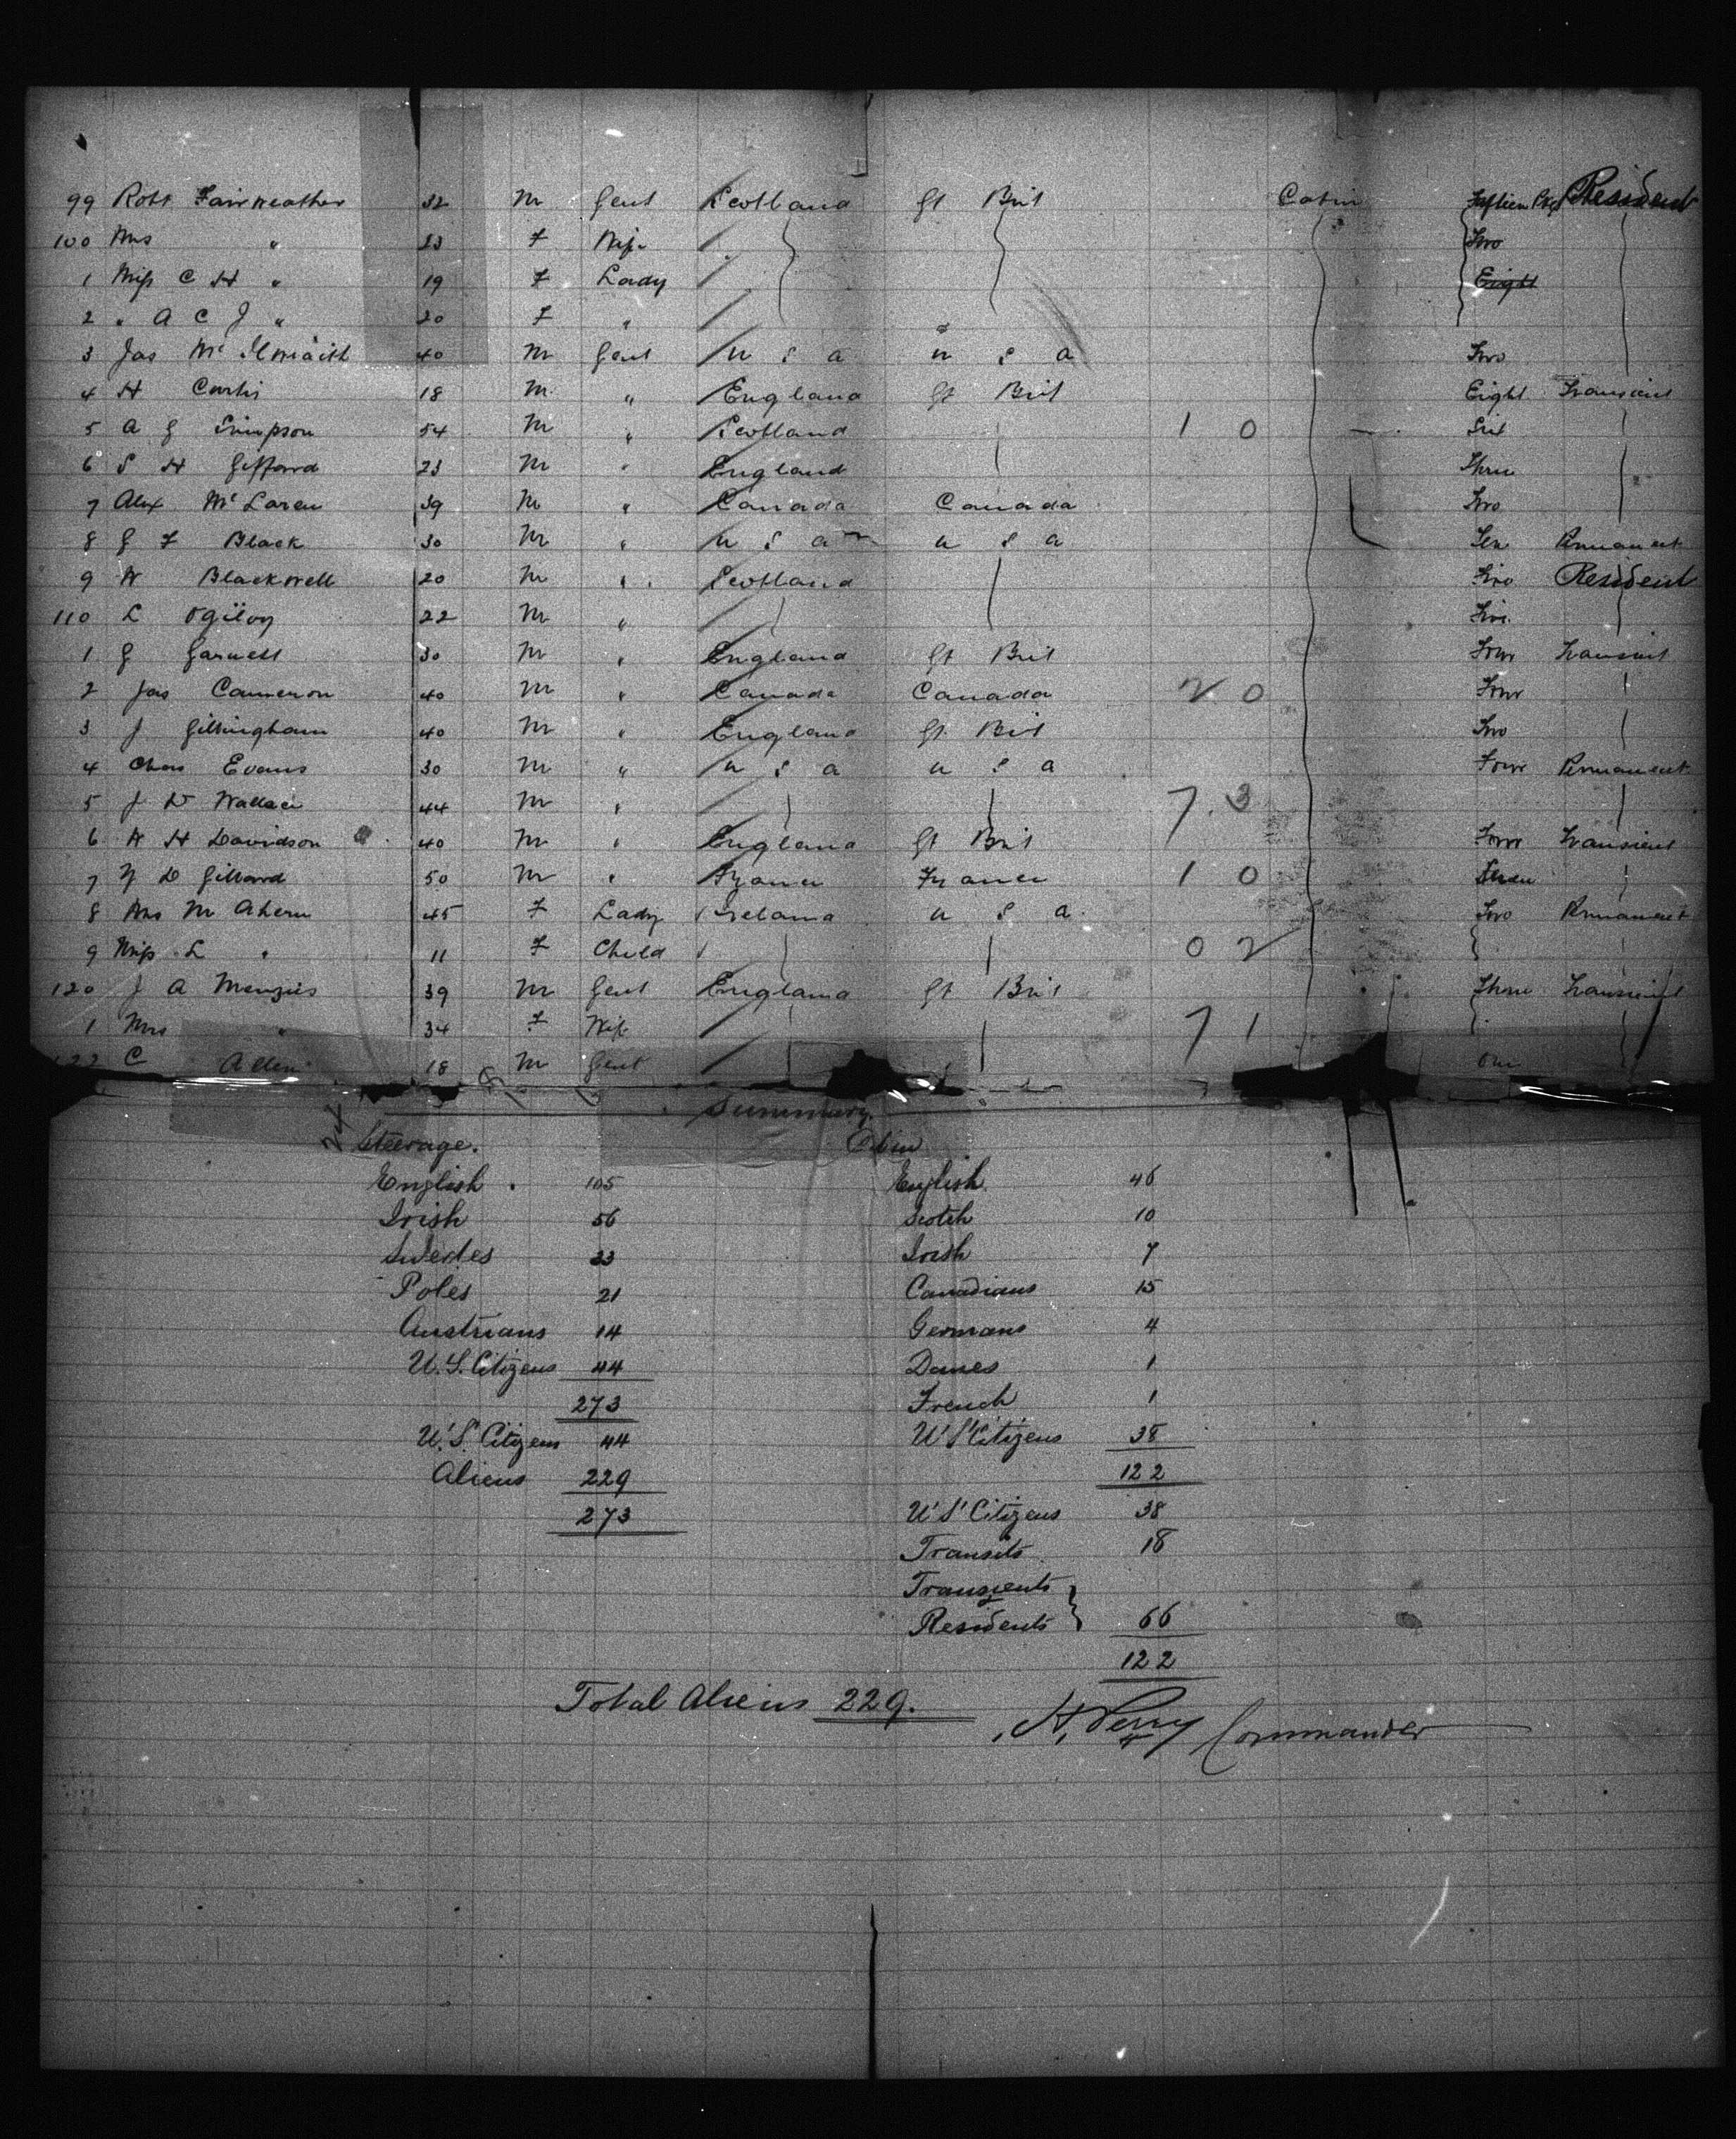 99 Robt Fairweather 32 M Gent Scotland Gt Brit Cabin Resident
100 Mrs " 23 F Wife Two
1 Miss C H " 19 F Lady Eight
2 " A C J " 20 F "
3 Jas Mc Ilwraith 40 M Gent U S A U S A Two
4 H Curtis 18 M " England Gt Brit Eight Transient
5 A G Simpson 54 M " Scotland 1 0 Six
6 S H Gifford 23 M " England Three
7 Alex McLaren 39 M " Canada Canada Two
8 G F Black 30 M " U S A U S A Ten Permanent
9 W Blackwell 20 M " Scotland Two Resident
110 L Ogilvy 22 M " Five
1 G Garnett 30 M " England Gt Brit Four Transient
2 Jas Cameron 40 M " Canada Canada 2 0 Four
3 J Gillingham 40 M " England Gt Brit Two
4 Chas Evans 30 M " U S A U S A Four Permanent
5 J W Wallace 44 M " 7.3
6 W H Davidson 40 M " England Gt Brit Four Transient
7 D Gillard 50 M " France France 1 0
8 Mrs M Ahern 45 F Lady Ireland U S A Two Permanent
9 Miss L " 11 F Child 0 2
120 J A Menzies 39 M Gent England Gt Brit Three Transient
1 Mrs " 34 F Wife 7 1
122 C Allen 18 M Gent One
Summary.
Steerage. Cabin
English . 105 English 46
Irish 56 Scotch 10
Swedes 33 Irish 7
Poles 21 Canadians 15
Austrians 14 Germans 4
U.S. Citizens 44 Danes 1
273 French 1
U.S. Citizens 44 U S Citizens 38
Aliens 229 122
273 U S Citizens 38
Transits 18
Transients
Residents } 66
122
Total Aliens 229.
H. Perry Commander